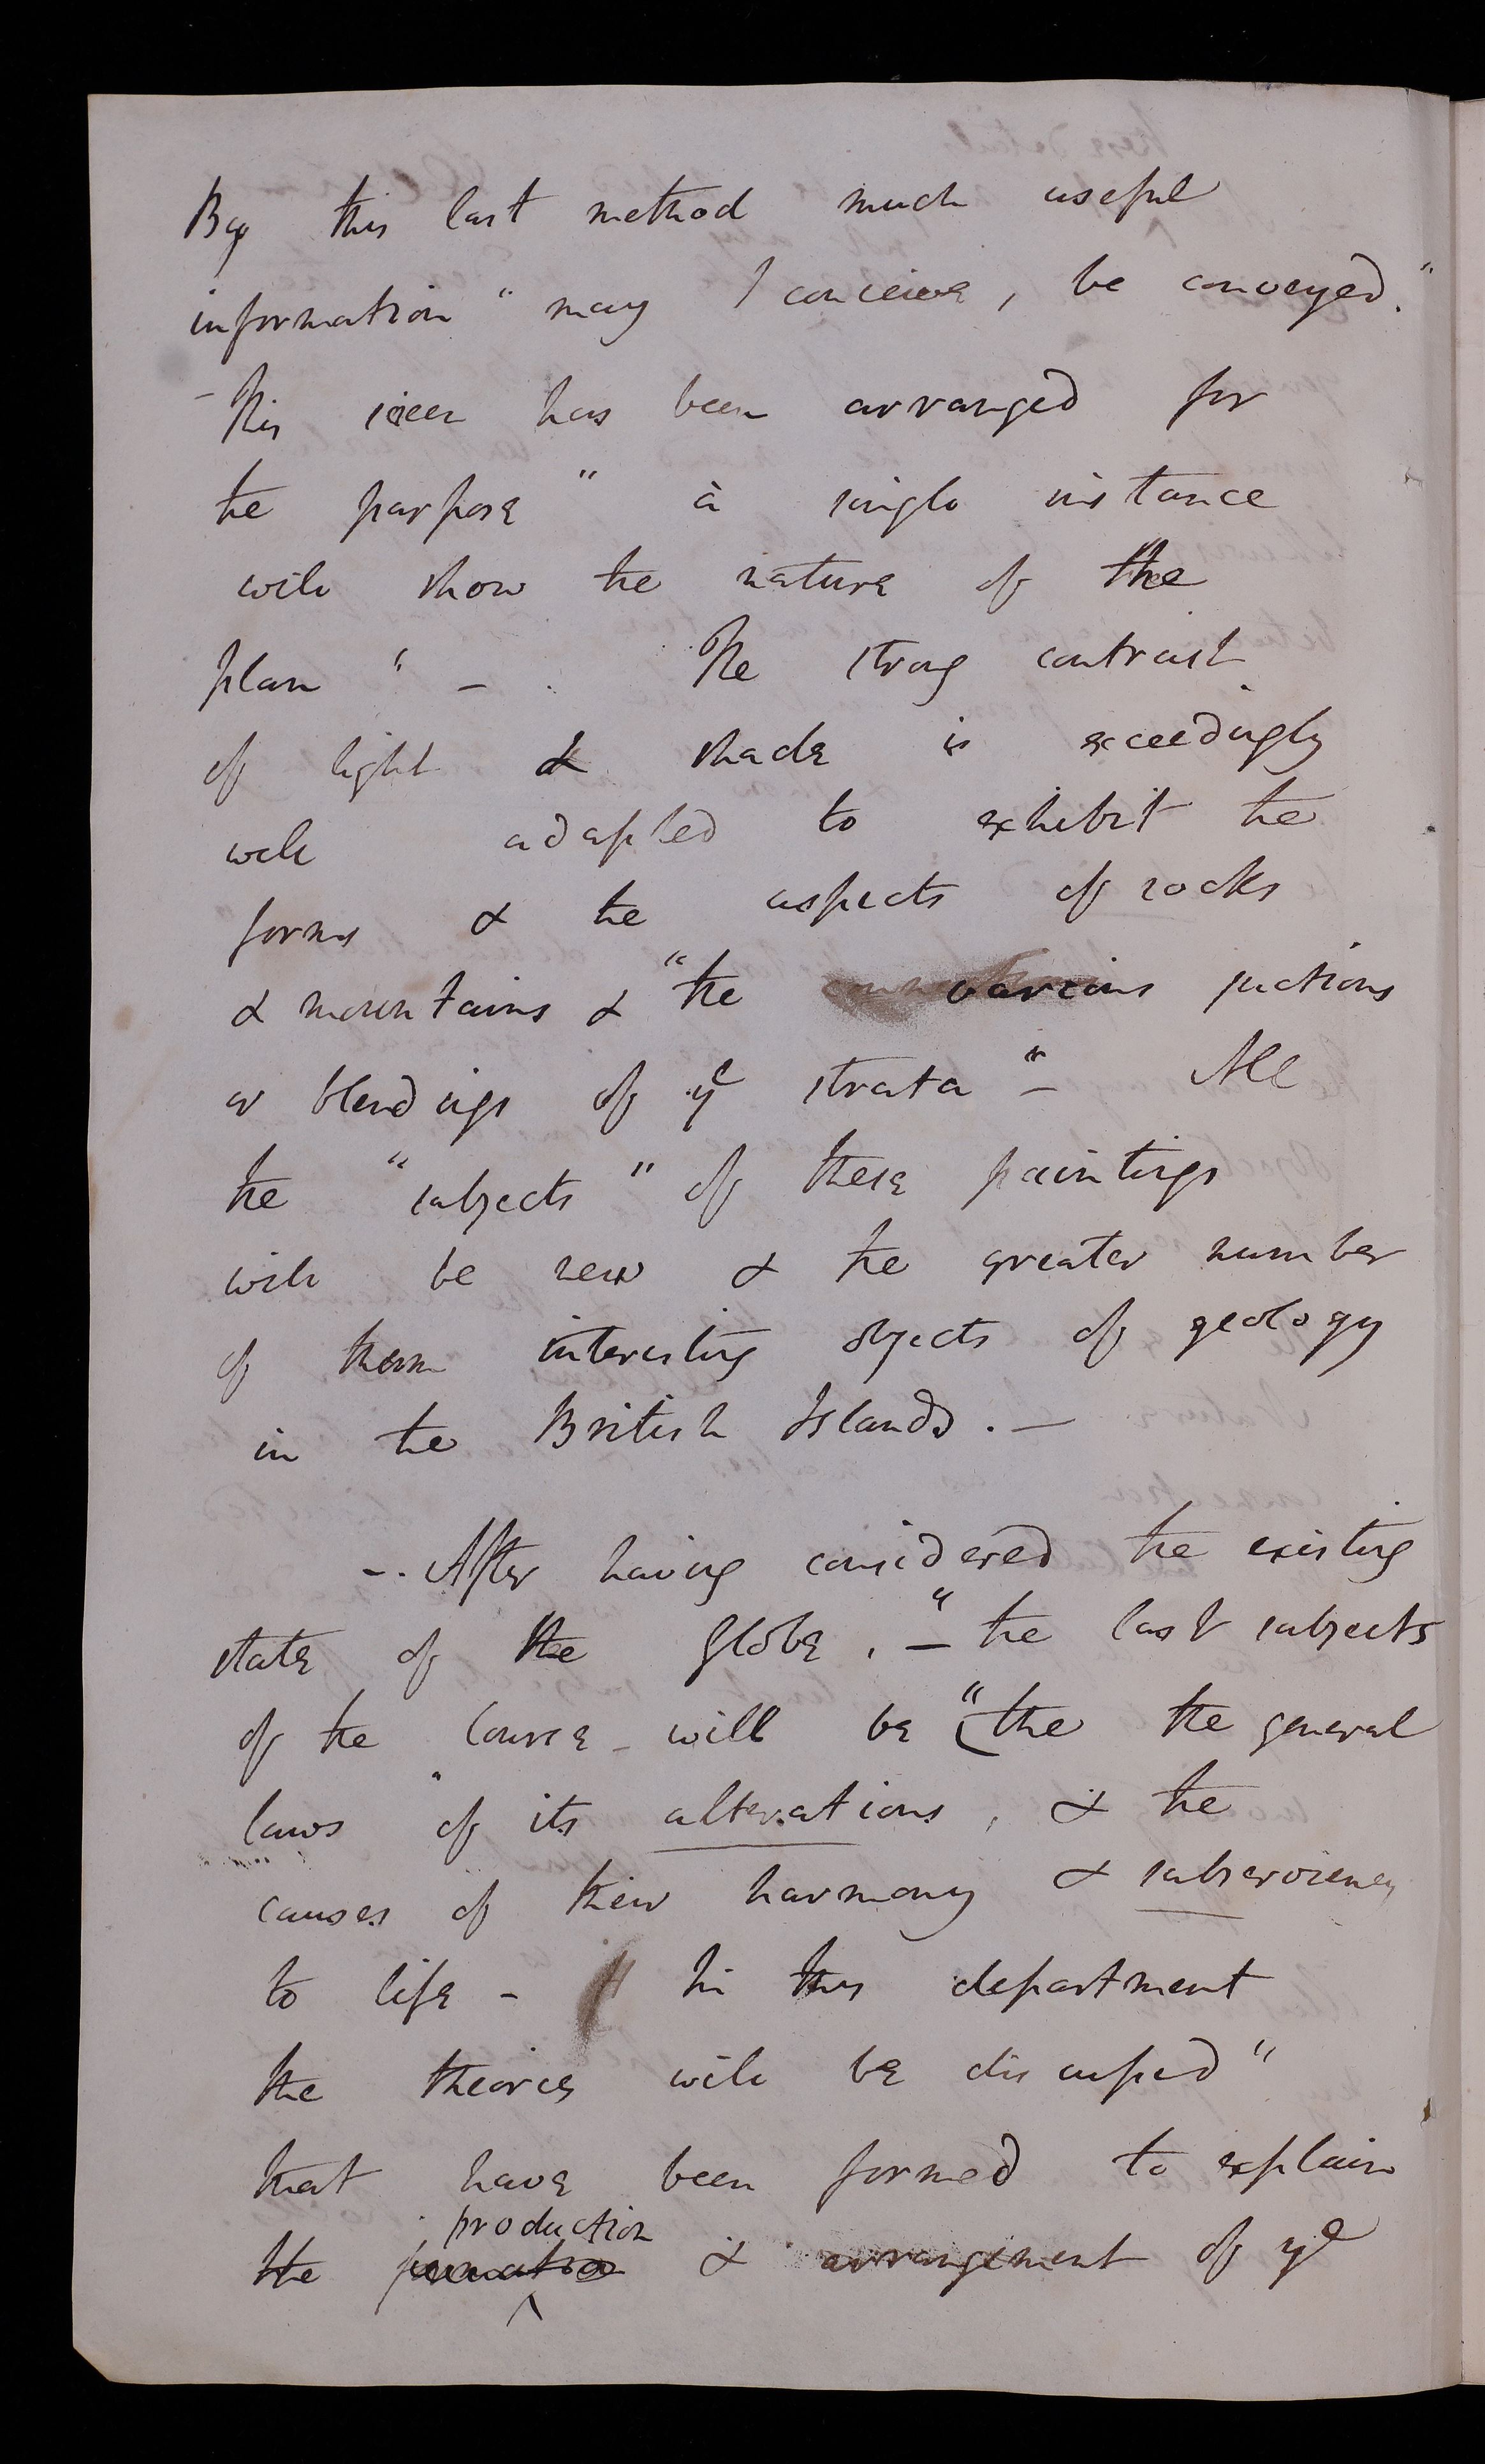 By this last method much useful
information " may I conceive, be conveyed."
- This has been arranged for
the purpose " a single instance
will show the nature of the
plan " - . The strong contrast
of light & shade is exceedingly
well adapted to exhibit the
forms & the aspects of rocks
& mountains & "the various
or blendings of ye strata" - All
the "subjects" of these paintings
will be new & the greater number
of them interesting objects of geology
in the British Islands. -
-. After having considered the existing
state of the Globe, - "the last subjects
of the Course - will be "(the the general
laws "of its alterations, & the
causes of their harmony & subserviency
to life - " In this department
the theories will be discussed"
that have been formed to explain
production
the formation & arrangement of ye